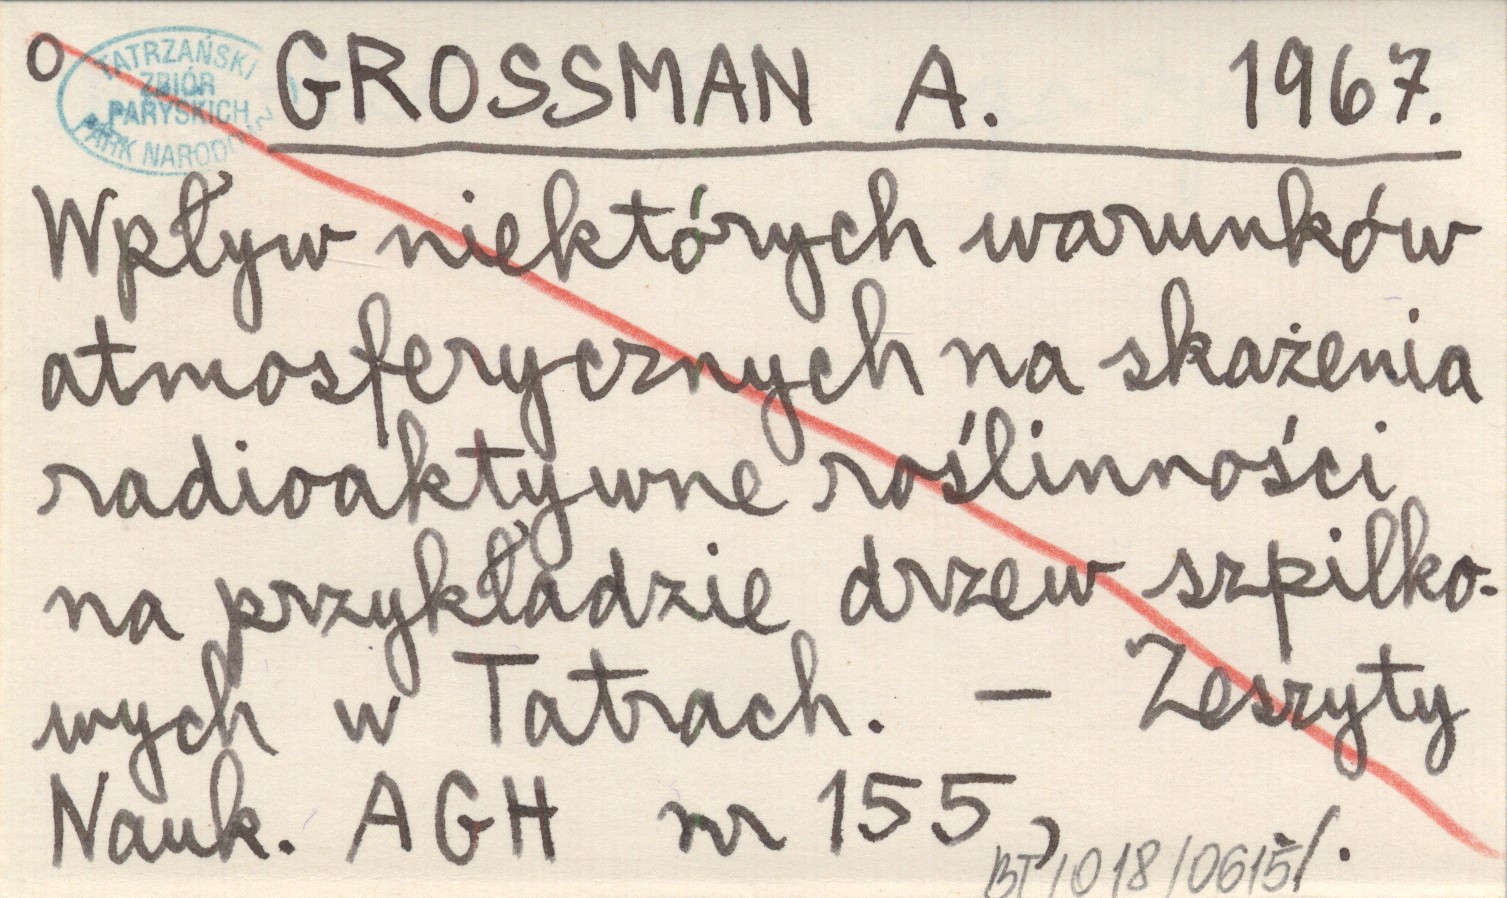 O GROSSMAN A. 1967.
TATRZAŃSKI
ZBIÓR
PARYSKICH
PARK NARODOWY
Wpływ niektórych warunków
atmosferycznych na skażenia
radioaktywne roślinności
na przykładzie drzew szpilko-
wych w Tatrach. — Zeszyty
Nauk. AGH nr 155, .
BT/018/0615/